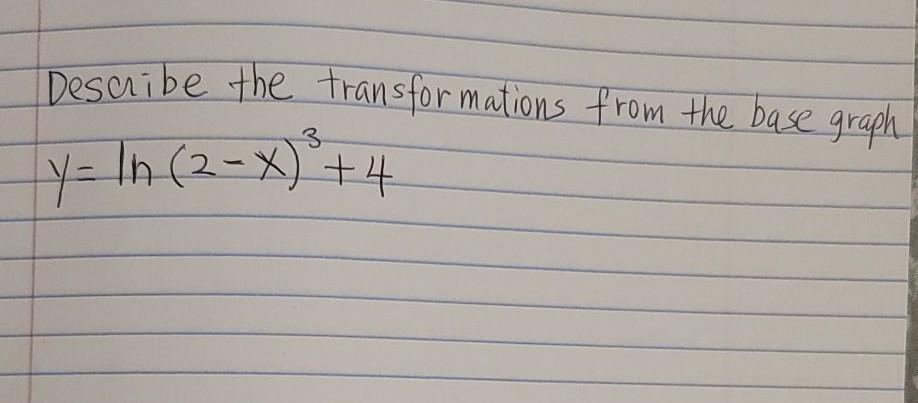 Describe the transformations from the base graph
y = ln (2 - x)³ + 4